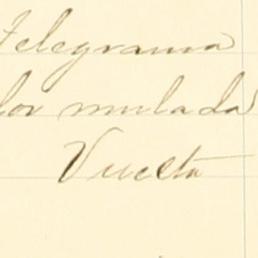 Telegrama
lor mulada
Vuelta